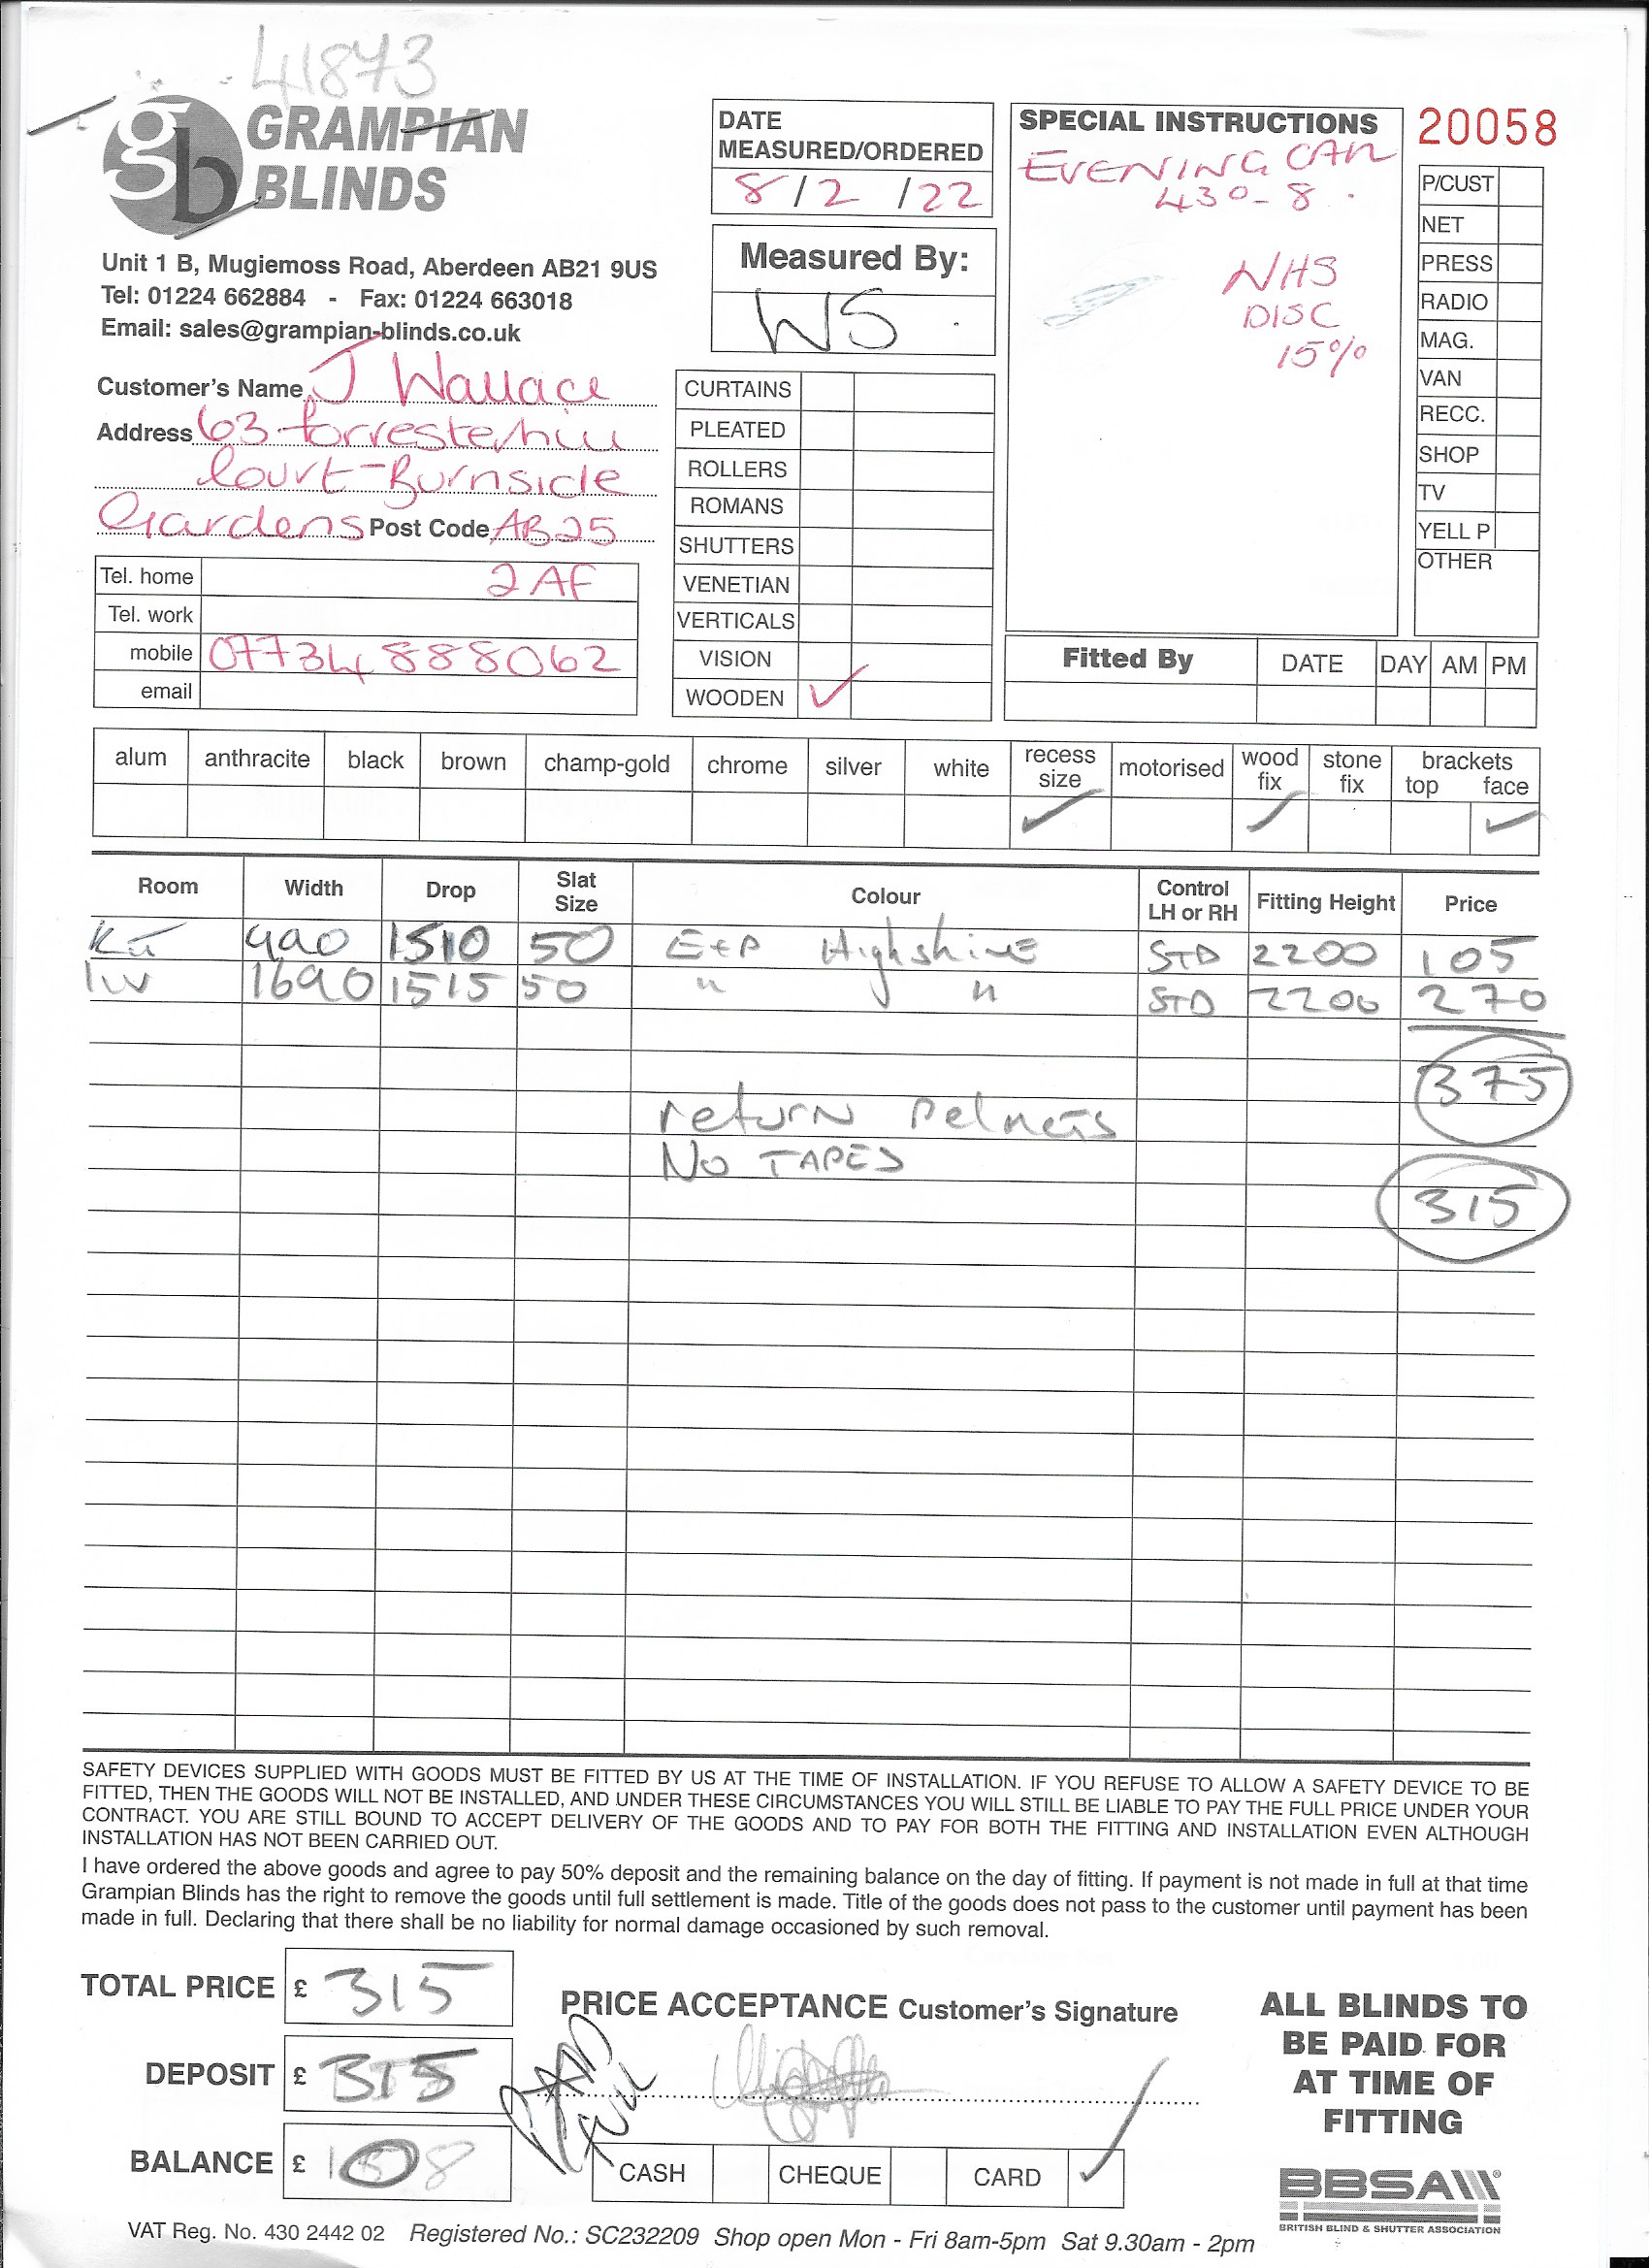 41873
GRAMPIAN
BLINDS
Unit 1 B, Mugiemoss Road, Aberdeen AB21 9US
Tel: 01224 662884 - Fax: 01224 663018
Email: sales@grampian-blinds.co.uk
Customer's Name J Wallace
Address 63 forresterhill
Court-Burnside
Gardens Post Code AB25
Tel. home 2AF
Tel. work
mobile 07734 888062
email
DATE
MEASURED/ORDERED
8/2/22
Measured By:
WS.
CURTAINS
PLEATED
ROLLERS
ROMANS
SHUTTERS
VENETIAN
VERTICALS
VISION
WOODEN ✓
SPECIAL INSTRUCTIONS
EVENING CAN
430-8.
NHS
DISC
15%
20058
P/CUST
NET
PRESS
RADIO
MAG.
VAN
RECC.
SHOP
TV
YELL P
OTHER
Fitted By DATE DAY AM PM
alum anthracite black brown champ-gold chrome silver white recess size motorised wood fix stone fix brackets top face
✓ ✓ ✓
Room Width Drop Slat Size Colour Control LH or RH Fitting Height Price
Kit 990 1510 50 E+P Highshine STD 2200 105
liv 1690 1515 50 " " STD 2200 270
375
return Pelmets
No TAPES
315
SAFETY DEVICES SUPPLIED WITH GOODS MUST BE FITTED BY US AT THE TIME OF INSTALLATION. IF YOU REFUSE TO ALLOW A SAFETY DEVICE TO BE
FITTED, THEN THE GOODS WILL NOT BE INSTALLED, AND UNDER THESE CIRCUMSTANCES YOU WILL STILL BE LIABLE TO PAY THE FULL PRICE UNDER YOUR
CONTRACT. YOU ARE STILL BOUND TO ACCEPT DELIVERY OF THE GOODS AND TO PAY FOR BOTH THE FITTING AND INSTALLATION EVEN ALTHOUGH
INSTALLATION HAS NOT BEEN CARRIED OUT.
I have ordered the above goods and agree to pay 50% deposit and the remaining balance on the day of fitting. If payment is not made in full at that time
Grampian Blinds has the right to remove the goods until full settlement is made. Title of the goods does not pass to the customer until payment has been
made in full. Declaring that there shall be no liability for normal damage occasioned by such removal.
TOTAL PRICE £ 315
DEPOSIT £ 315
BALANCE £ 0
PRICE ACCEPTANCE Customer's Signature
PAID
CASH CHEQUE CARD ✓
ALL BLINDS TO
BE PAID FOR
AT TIME OF
FITTING
BBSA
BRITISH BLIND & SHUTTER ASSOCIATION
VAT Reg. No. 430 2442 02 Registered No.: SC232209 Shop open Mon - Fri 8am-5pm Sat 9.30am - 2pm